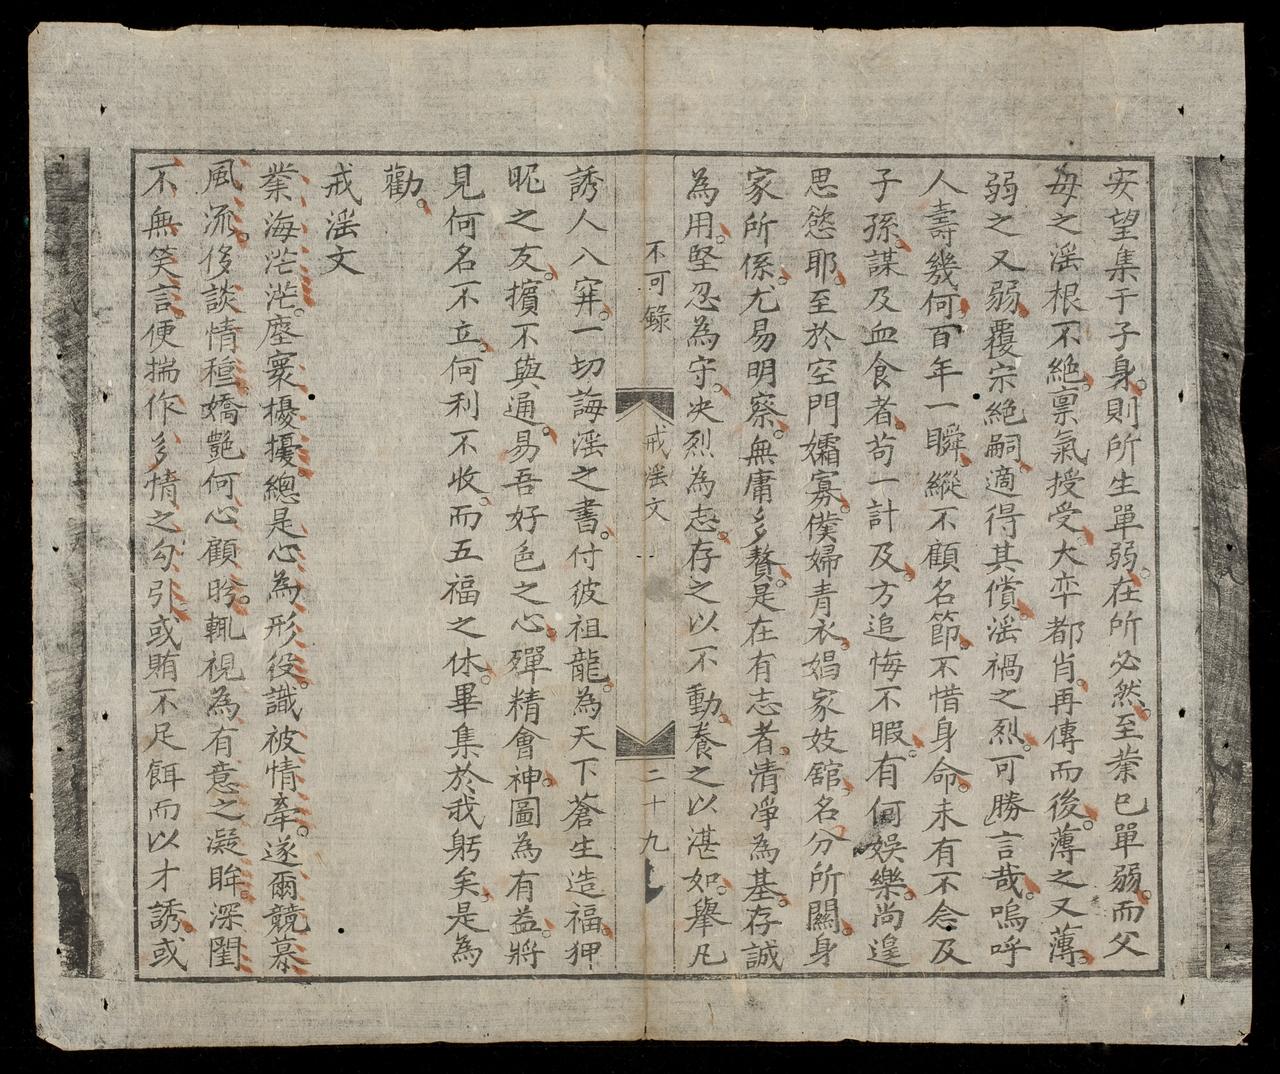 安望集于子身。則所生單弱。在所必然。至業已單弱。而父
母之滛根不絶。禀氣授受。大卒都肖。再傳而後。薄之又薄。
弱之又弱。覆宗絶嗣。適得其償。滛禍之烈。可勝言哉。嗚呼
人壽幾何。百年一瞬。縱不顧名節。不惜身命。未有不念及
子孫。謀及血食者。苟一計及。方追悔不暇。有何娱樂。尚遑
思慾耶。至於空門孀寡。僕婦青衣。娼家妓舘。名分所關。身
家所係。尤易明察。無庸多贅。是在有志者。清凈為基。存誠
為用。堅忍為守。决烈為志。存之以不動。養之以湛如。舉凡
不可錄
戒滛文
二十九
誘人入穽。一切誨滛之書。付彼祖龍。為天下蒼生造福。狎
昵之友。擯不與通。易吾好色之心。殫精會神。圖為有益。將
見何名不立。何利不收。而五福之休。畢集於我躬矣。是為
勸。
戒滛文
業海茫茫。塵寰擾擾。總是心為形役。識被情牽。遂爾競慕
風流。侈談情種。嬌艶何心顧盻。輒視為有意之凝眸。深閨
不無笑言。便揣作多情之勾引。或賄不足餌而以才誘。或